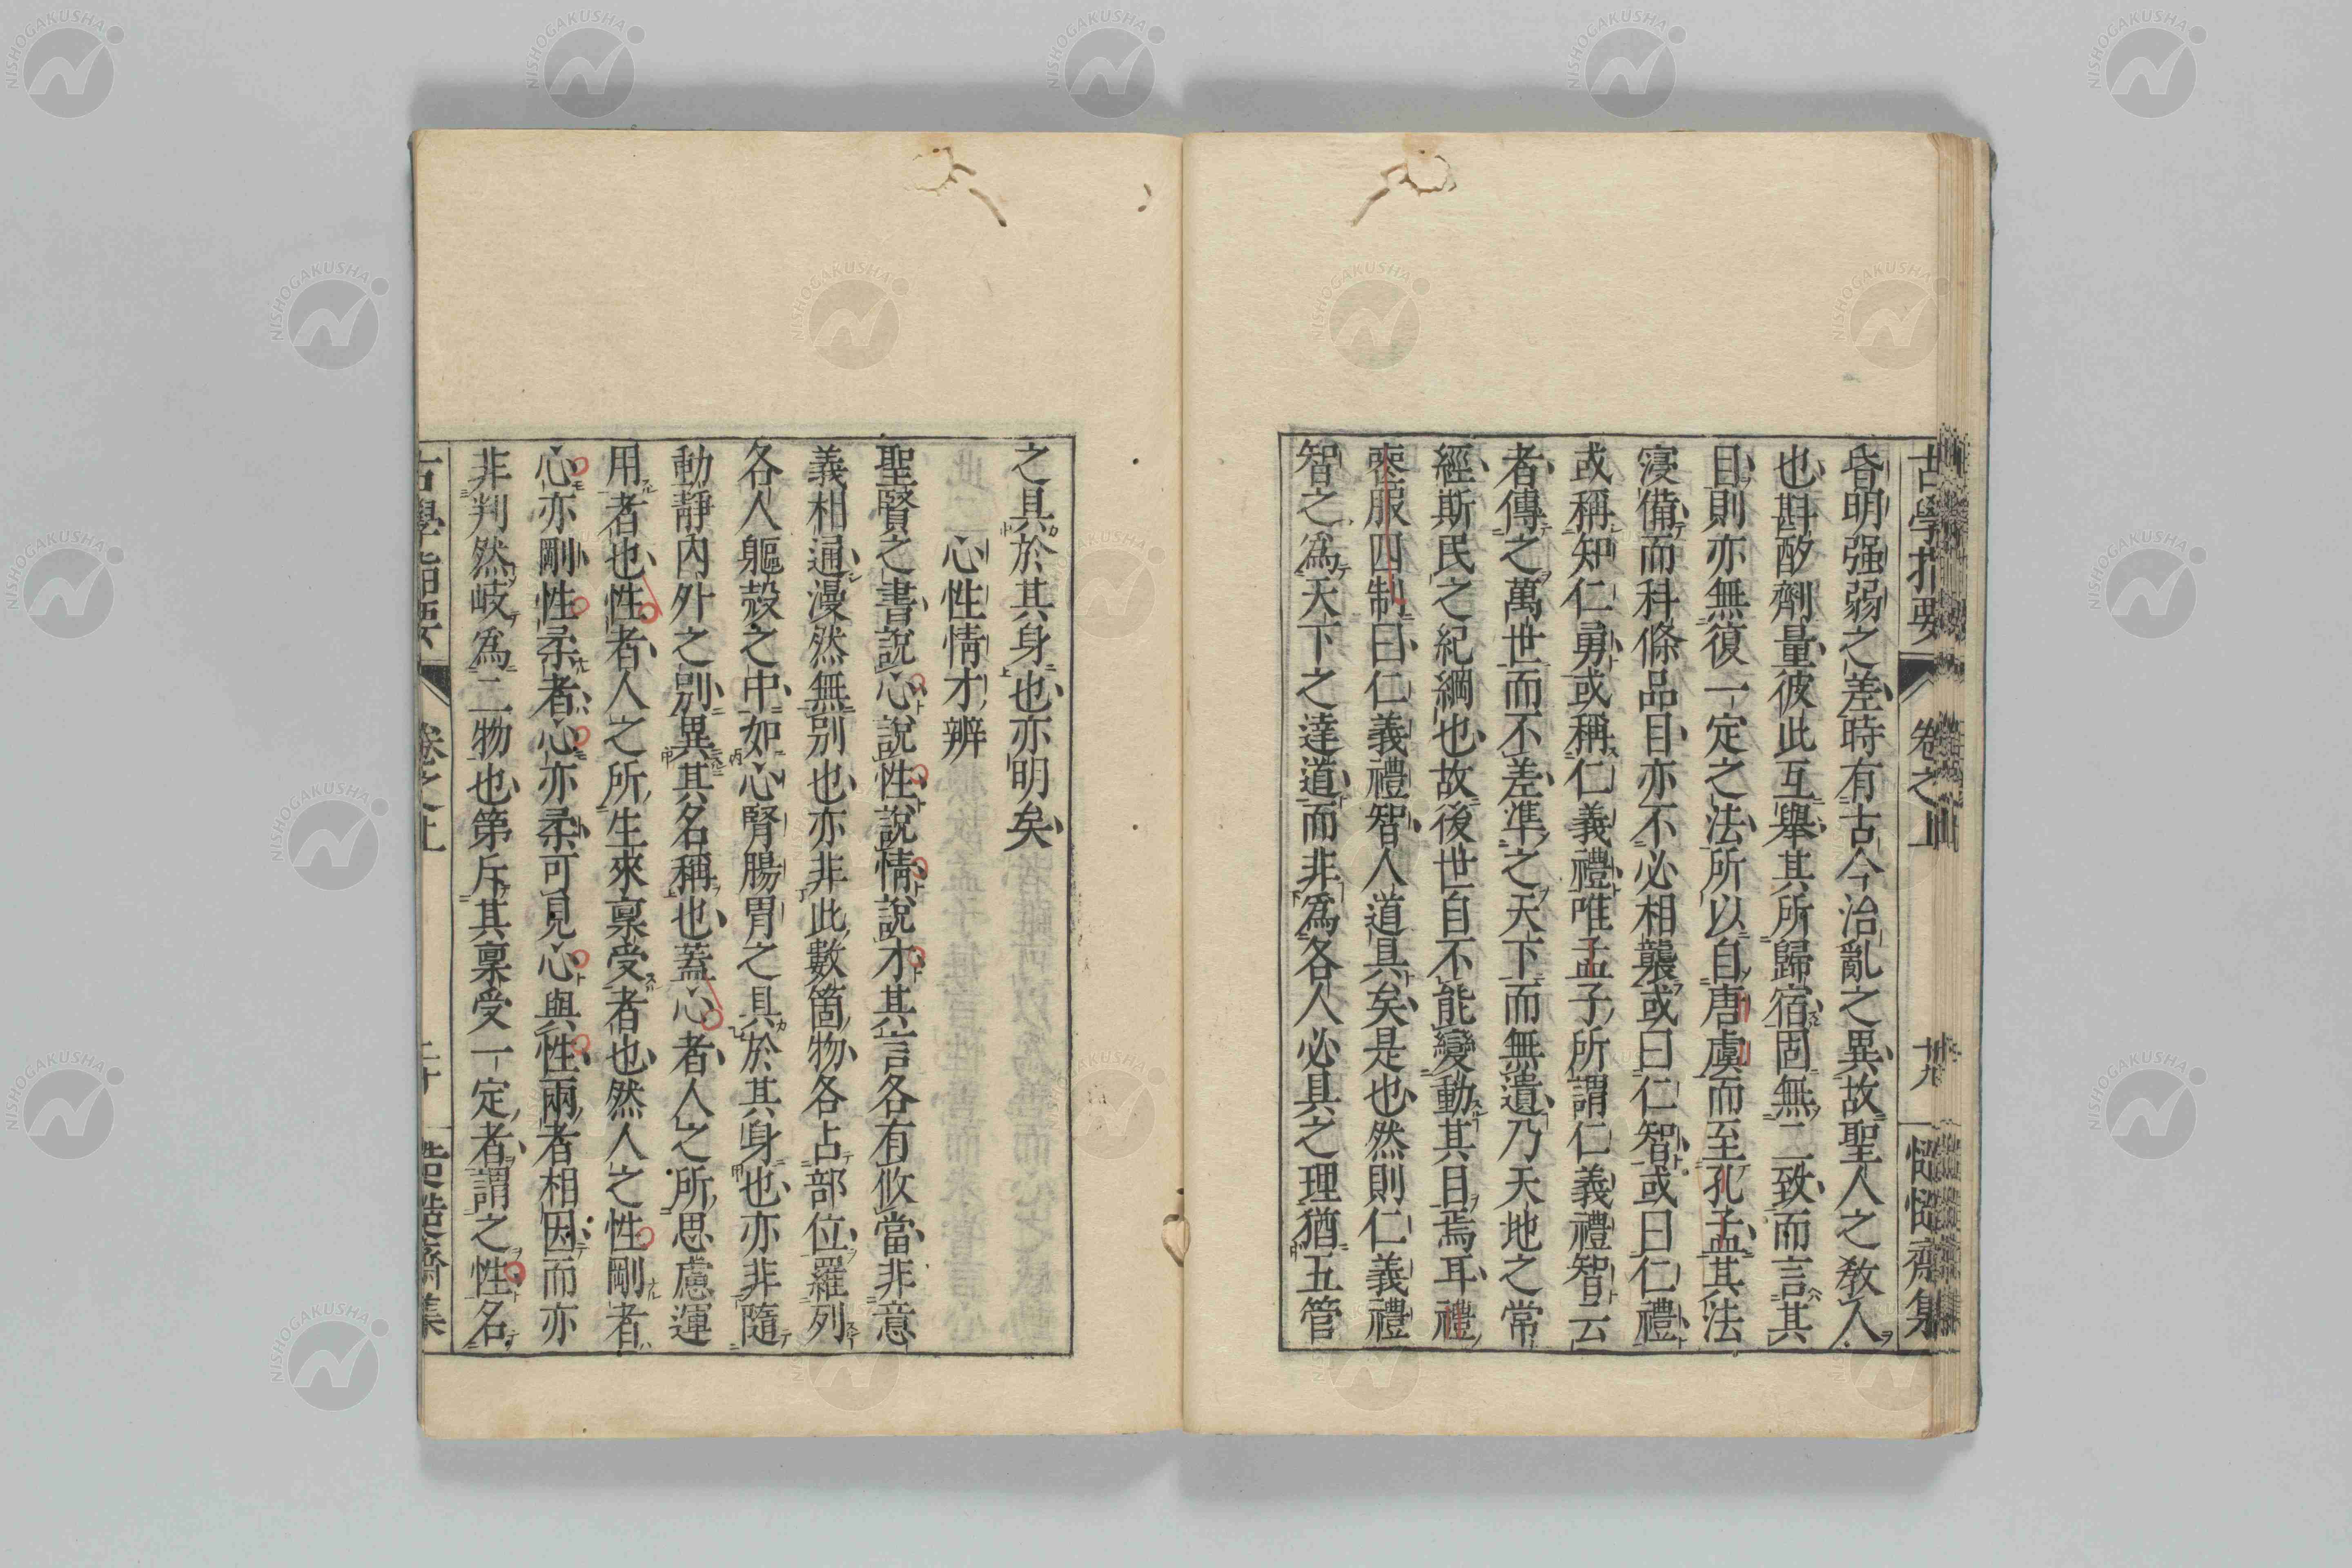 古學指要 卷之上 十九 慥慥齋集
昏明强弱之差時有古今治亂之異故聖人之教人
也斟酌劑量彼此互舉其所歸宿固無二致而言其
目則亦無復一定之法所以自唐虞而至孔孟其法
寖備而科條品目亦不必相襲或曰仁智或曰仁禮
或稱知仁勇或稱仁義禮唯孟子所謂仁義禮智云
者傳之萬世而不差準之天下而無遺乃天地之常
經斯民之紀綱也故後世自不能變動其目焉耳禮
喪服四制曰仁義禮智人道具矣是也然則仁義禮
智之爲天下之達道而非爲各人必具之理猶五管
之具於其身也亦明矣
心性情才辨
聖賢之書說心說性說情說才其言各有攸當非意
義相通漫然無別也亦非此數箇物各占部位羅列
各人軀殼之中如心腎腸胃之具於其身也亦非隨
動靜內外之別異其名稱也蓋心者人之所思慮運
用者也性者人之所生來稟受者也然人之性剛者
心亦剛性柔者心亦柔可見心與性兩者相因而亦
非判然岐爲二物也第斥其稟受一定者謂之性名
古學指要 卷之上 二十 慥慥齋集
NISHOGAKUSHA